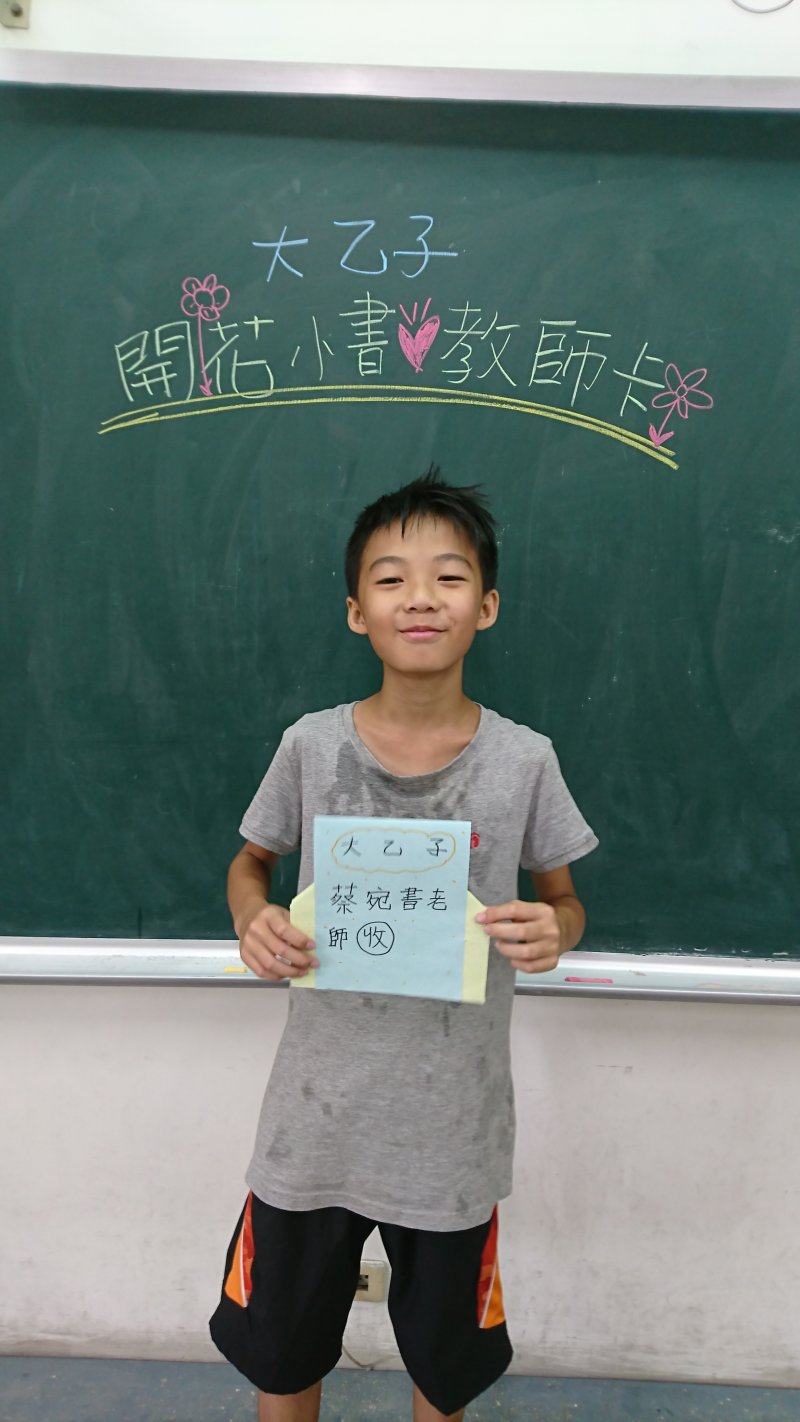 大乙子
開花小書教師卡
大乙子
蔡宛書老
師收